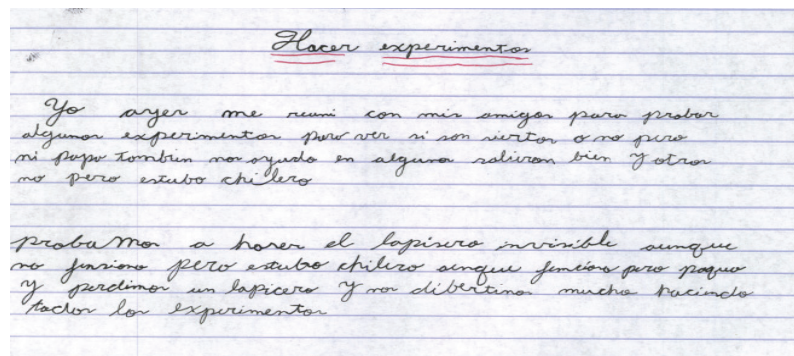 Hacer experimentos
Yo ayer me reuni con mis amigos para probar
algunos experimentos para ver si son siertos o no pero
mi papa tambien nos ayudo en algunos salieron bien y otros
no pero estubo chilero
probamos a hacer el lapisero invisible aunque
no funsiono pero estubo chilero aunque funciono pero poquo
y perdimos un lapicero y nos dibertimos mucho haciendo
todos los experimentos